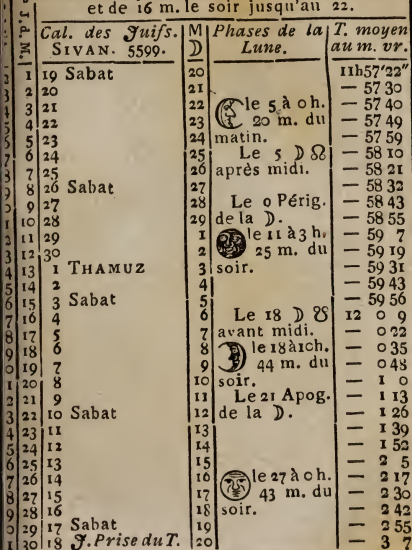 et de 16 m. le soir jusqu'au 22.
J. d. M. Cal. des Juifs. M Phases de la T. moyen
SIVAN. 5599. ☽ Lune. au m. vr.
1 19 Sabat 20 11h57'22"
2 20 21 — 57 30
3 21 22 le 5 à 0 h. — 57 40
4 22 23 20 m. du — 57 49
5 23 24 matin. — 57 59
6 24 25 Le 5 ☽ ☊ — 58 10
7 25 26 après midi. — 58 21
8 26 Sabat 27 — 58 32
9 27 28 Le 9 Périg. — 58 43
10 28 29 de la ☽. — 58 55
11 29 1 le 11 à 3 h. — 59 7
12 30 2 25 m. du — 59 19
13 1 THAMUZ 3 soir. — 59 31
14 2 4 — 59 43
15 3 Sabat 5 — 59 56
16 4 6 Le 18 ☽ ☋ 12 0 9
17 5 7 avant midi. — 0 22
18 6 8 le 18 à 10h. — 0 35
19 7 9 44 m. du — 0 48
20 8 10 soir. — 1 0
21 9 11 Le 21 Apog. — 1 13
22 10 Sabat 12 de la ☽. — 1 26
23 11 13 — 1 39
24 12 14 — 1 52
25 13 15 — 2 5
26 14 16 le 27 à 0 h. — 2 17
27 15 17 43 m. du — 2 30
28 16 18 soir. — 2 42
29 17 Sabat 19 — 2 55
30 18 J. Prise du T. 20 — 3 7